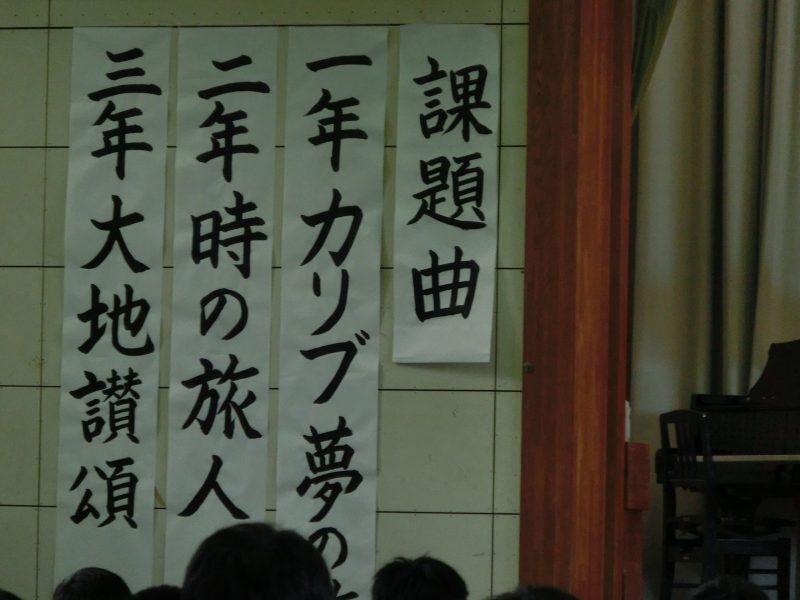 課題曲
一年 カリブ夢の
二年 時の旅人
三年 大地讃頌